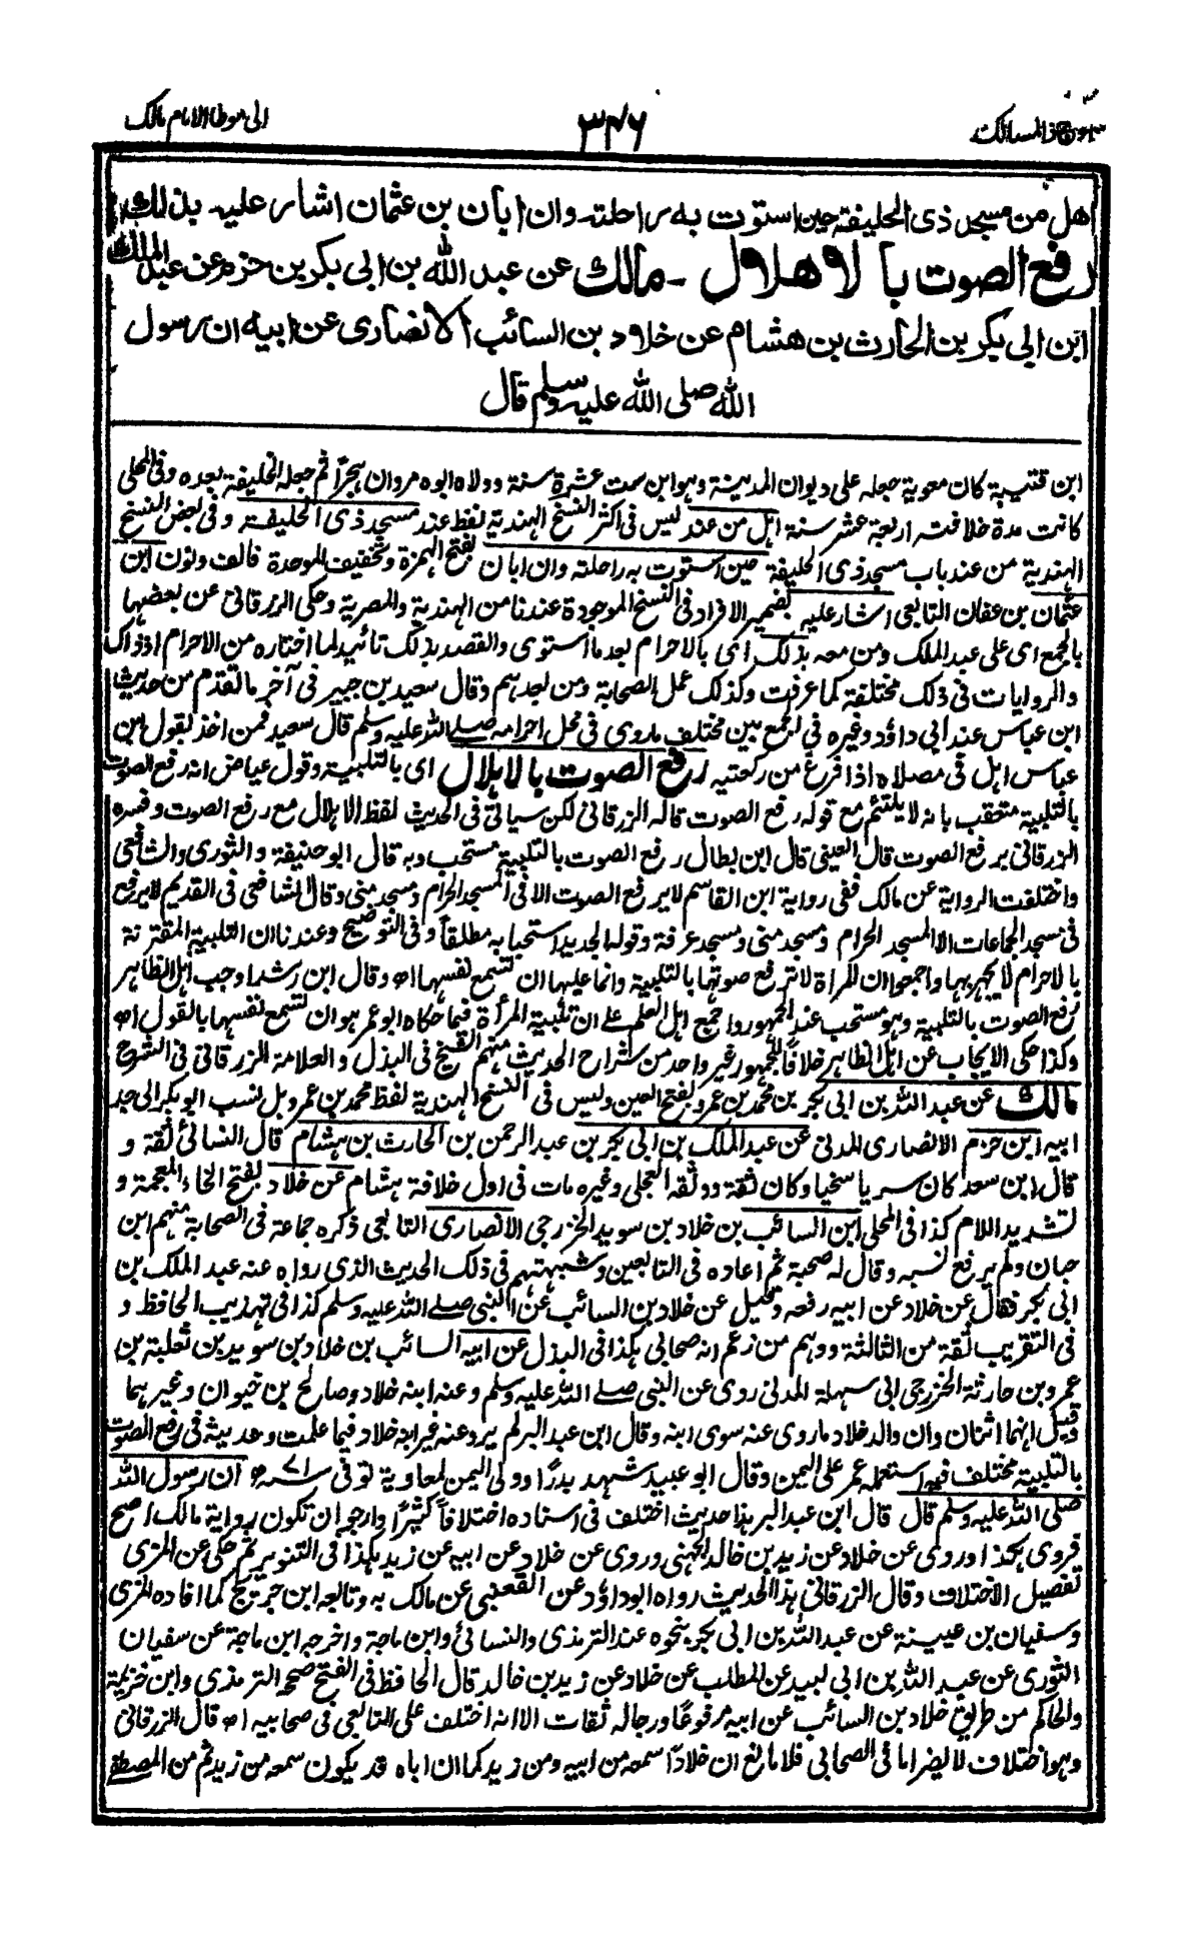 اوجز المسالك
٣٤٦
الى موطا الامام مالك
اهل من مسجد ذى الحليفة حين استوت به راحلته وان ابان بن عثمان اشار عليه بذلك
رفع الصوت بالاهلال ـ مالك عن عبد الله بن ابى بكر بن حزم عن عبد الملك
ابن ابى بكر بن الحارث بن هشام عن خلاد بن السائب الانصارى عن ابيه ان رسول
الله صلى الله عليه وسلم قال
ابن قتيبة كان معوية جعله على ديوان المدينة وهو ابن ست عشرة سنة وولاه ابوه مروان هجرًا ثم جعله الخليفة بعده وفى المحلى
كانت مدة خلافته اربعة عشر سنة اهل من عند ليس فى اكثر النسخ الهندية لفظ عند مسجد ذى الحليفة وفى بعض النسخ
الهندية من عند باب مسجد ذى الحليفة حين استوت به راحلته وان ابان بفتح الهمزة وتخفيف الموحدة فالف ونون ابن
عثمان بن عفان التابعى اشار عليه بضمير الافراد فى النسخ الموجودة عندنا من الهندية والمصرية وحكى الزرقانى عن بعضها
بالجمع اى على عبد الملك ومن معه بذلك اى بالاحرام بعد ما استوى والقصد بذلك تائيد لما اختاره من الاحرام اذ ذاك
والروايات فى ذلك مختلفة كما عرفت وكذلك عمل الصحابة ومن بعدهم وقال سعيد بن جبير فى آخر ما تقدم من حديث
ابن عباس عند ابى داؤد وغيره فى الجمع بين مختلف ما روى فى محل احرامه صلى الله عليه وسلم قال سعيد فمن اخذ بقول ابن
عباس اهل فى مصلاه اذا فرغ من ركعتيه رفع الصوت بالاهلال اى بالتلبية وقول عياض انه رفع الصوت
بالتلبية متعقب بانه لا يلتئم مع قوله رفع الصوت قاله الزرقانى لكن سيأتى فى الحديث لفظ الاهلال مع رفع الصوت وفسره
الزرقانى برفع الصوت قال العينى قال ابن بطال رفع الصوت بالتلبية مستحب وبه قال ابو حنيفة والثورى والشافعى
واختلفت الرواية عن مالك ففى رواية ابن القاسم لا يرفع الصوت الا فى المسجد الحرام ومسجد منى وقال الشافعى فى القديم لا يرفع
فى مسجد الجماعات الا المسجد الحرام ومسجد منى ومسجد عرفة وقوله الجديد استحبابه مطلقاً وفى التوضيح وعندنا ان التلبية المقترنة
بالاحرام لا يجهر بها واجمعوا ان المراة لا ترفع صوتها بالتلبية وانما عليها ان تسمع نفسها اھ وقال ابن رشد اوجب اهل الظاهر
رفع الصوت بالتلبية وهو مستحب عند الجمهور واجمع اهل العلم على ان تلبية المرأة فيما حكاه ابو عمر هو ان تسمع نفسها بالقول اھ
وكذا حكى الايجاب عن اهل الظاهر خلافاً للجمهور غير واحد من شراح الحديث منهم الشيخ فى البذل والعلامة الزرقانى فى الشرح
مالك عن عبد الله بن ابى بكر بن محمد بن عمرو بفتح العين وليس فى النسخ الهندية لفظ محمد بن عمرو بل نسب ابو بكر الى جد
ابيه ابن حزم الانصارى المدنى عن عبد الملك بن ابى بكر بن عبد الرحمن بن الحارث بن هشام قال النسائى ثقة و
قال ابن سعد كان سريا سخيا وكان ثقة ووثقه العجلى وغيره مات فى اول خلافة هشام عن خلاد بفتح الخاء المعجمة و
تشديد اللام كذا فى المحلى ابن السائب بن خلاد بن سويد الخزرجى الانصارى التابعى ذكره جماعة فى الصحابة منهم ابن
حبان ولم يرفع نسبه وقال له صحبة ثم اعاده فى التابعين وشبهتهم فى ذلك الحديث الذى رواه عنه عبد الملك بن
ابى بكر فقال عن خلاد عن ابيه رفعه وقيل عن خلاد بن السائب عن النبى صلى الله عليه وسلم كذا فى تهذيب الحافظ و
فى التقريب ثقة من الثالثة ووهم من زعم انه صحابى هكذا فى البذل عن ابيه السائب بن خلاد بن سويد بن ثعلبة بن
عمرو بن حارثة الخزرجى ابى سهلة المدنى روى عن النبى صلى الله عليه وسلم وعنه ابنه خلاد وصالح بن خيوان وغيرهما
قيل انهما اثنان وان والد خلاد ما روى عنه سوى ابنه وقال ابن عبد البر لم يرو عنه غير ابنه خلاد فيما علمت وحديثه فى رفع الصوت
بالتلبية مختلف فيه استعمله عمر على اليمن وقال ابو عبيد شهد بدرًا وولى اليمن لمعاوية توفى سنة ٧١ھ ان رسول الله
صلى الله عليه وسلم قال قال ابن عبد البر هذا حديث اختلف فى اسناده اختلافاً كثيرًا وارجو ان تكون رواية مالك اصح
فروى هكذا وروى عن خلاد عن زيد بن خالد الجهنى وروى عن خلاد عن ابيه عن زيد هكذا فى التنوير ثم حكى عن المزى
تفصيل الاختلاف وقال الزرقانى هذا الحديث رواه ابو داؤد عن القعنبى عن مالك به وتابعه ابن جريج كما افاده المزى
وسفيان بن عيينة عن عبد الله بن ابى بكر بنحوه عند الترمذى والنسائى وابن ماجة واخرجه ابن ماجة عن سفيان
الثورى عن عبد الله بن ابى لبيد عن المطلب عن خلاد عن زيد بن خالد قال الحافظ فى الفتح صححه الترمذى وابن خزيمة
والحاكم من طريق خلاد بن السائب عن ابيه مرفوعًا ورجاله ثقات الا انه اختلف على التابعى فى صحابيه اھ قال الزرقانى
وهو اختلاف لا يضر اما فى الصحابى فلا مانع ان خلادًا سمعه من ابيه ومن زيد كما ان اباه قد يكون سمعه من زيد ثم من المصطفى